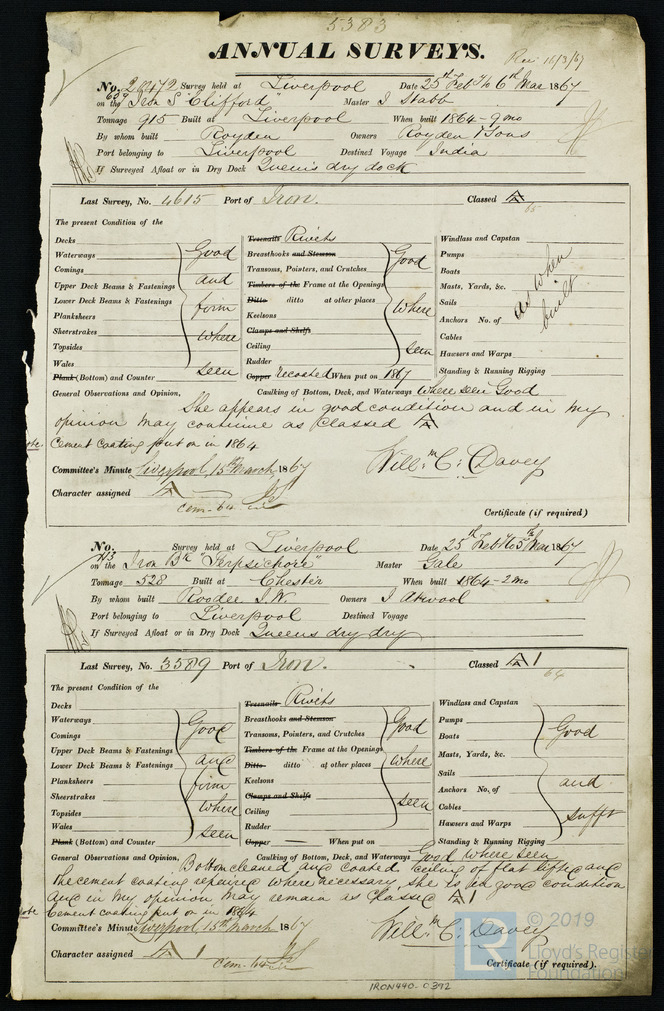 5383
ANNUAL SURVEYS.
Rec 16/3/67
No. Survey held at Liverpool Date 25th Feb to 6th Mar 1867
on the Iron S "Clifford" Master J Stabb
Tonnage 915 Built at Liverpool When built 1864 - 9 mo
By whom built Royden Owners Royden & Sons
Port belonging to Liverpool Destined Voyage India
If Surveyed Afloat or in Dry Dock Queens dry dock
Last Survey, No. 4615 Port of Iron. Classed A
The present Condition of the
Decks Treenails Rivets Windlass and Capstan
Waterways Good Breasthooks and Stemson Good Pumps
Comings Transoms, Pointers, and Crutches Boats as when
Upper Deck Beams & Fastenings and Timbers of the Frame at the Openings Masts, Yards, &c. built
Lower Deck Beams & Fastenings firm Ditto ditto at other places where Sails
Planksheers Keelsons Anchors No. of
Sheerstrakes where Clamps and Shelfs Cables
Topsides Ceiling seen Hawsers and Warps
Wales seen Rudder Standing & Running Rigging
Plank (Bottom) and Counter Copper recoated When put on 1867
General Observations and Opinion, Caulking of Bottom, Deck, and Waterways where seen Good
She appears in good condition and in my
opinion may continue as Classed A
Cement Coating put on in 1864
Committee's Minute Liverpool, 15th March 1867 Willm. C. Davey
Character assigned A
Cem. 64
Certificate (if required)
No. Survey held at Liverpool Date 25th Feb to 5th Mar 1867
on the Iron Bk "Terpsichore" Master Gale
Tonnage 528 Built at Chester When built 1864 - 2 mo
By whom built Roodee I.W. Owners J Atwool
Port belonging to Liverpool Destined Voyage
If Surveyed Afloat or in Dry Dock Queens dry dry
Last Survey, No. 3589 Port of Iron. Classed A 1
64
The present Condition of the
Decks Treenails Rivets Windlass and Capstan
Waterways Good Breasthooks and Stemson Good Pumps
Comings Transoms, Pointers, and Crutches Boats Good
Upper Deck Beams & Fastenings and Timbers of the Frame at the Openings where Masts, Yards, &c.
Lower Deck Beams & Fastenings Ditto ditto at other places Sails
Planksheers firm Keelsons Anchors No. of and
Sheerstrakes where Clamps and Shelfs seen Cables
Topsides Ceiling Hawsers and Warps sufft
Wales seen Rudder
Plank (Bottom) and Counter Copper When put on Standing & Running Rigging
General Observations and Opinion, Caulking of Bottom, Deck, and Waterways Good where seen
Bottom cleaned and coated ceiling of flat lifted and
the cement coating repaired where necessary, she is in good condition
and in my opinion may remain as Classed A 1
Cement coating put on in 1864
Committee's Minute Liverpool, 15th March 1867 Willm. C. Davey
Character assigned A 1
Cem. 64
Certificate (if required).
LR
© 2019
Lloyd's Register
Foundation
IRON440-0392